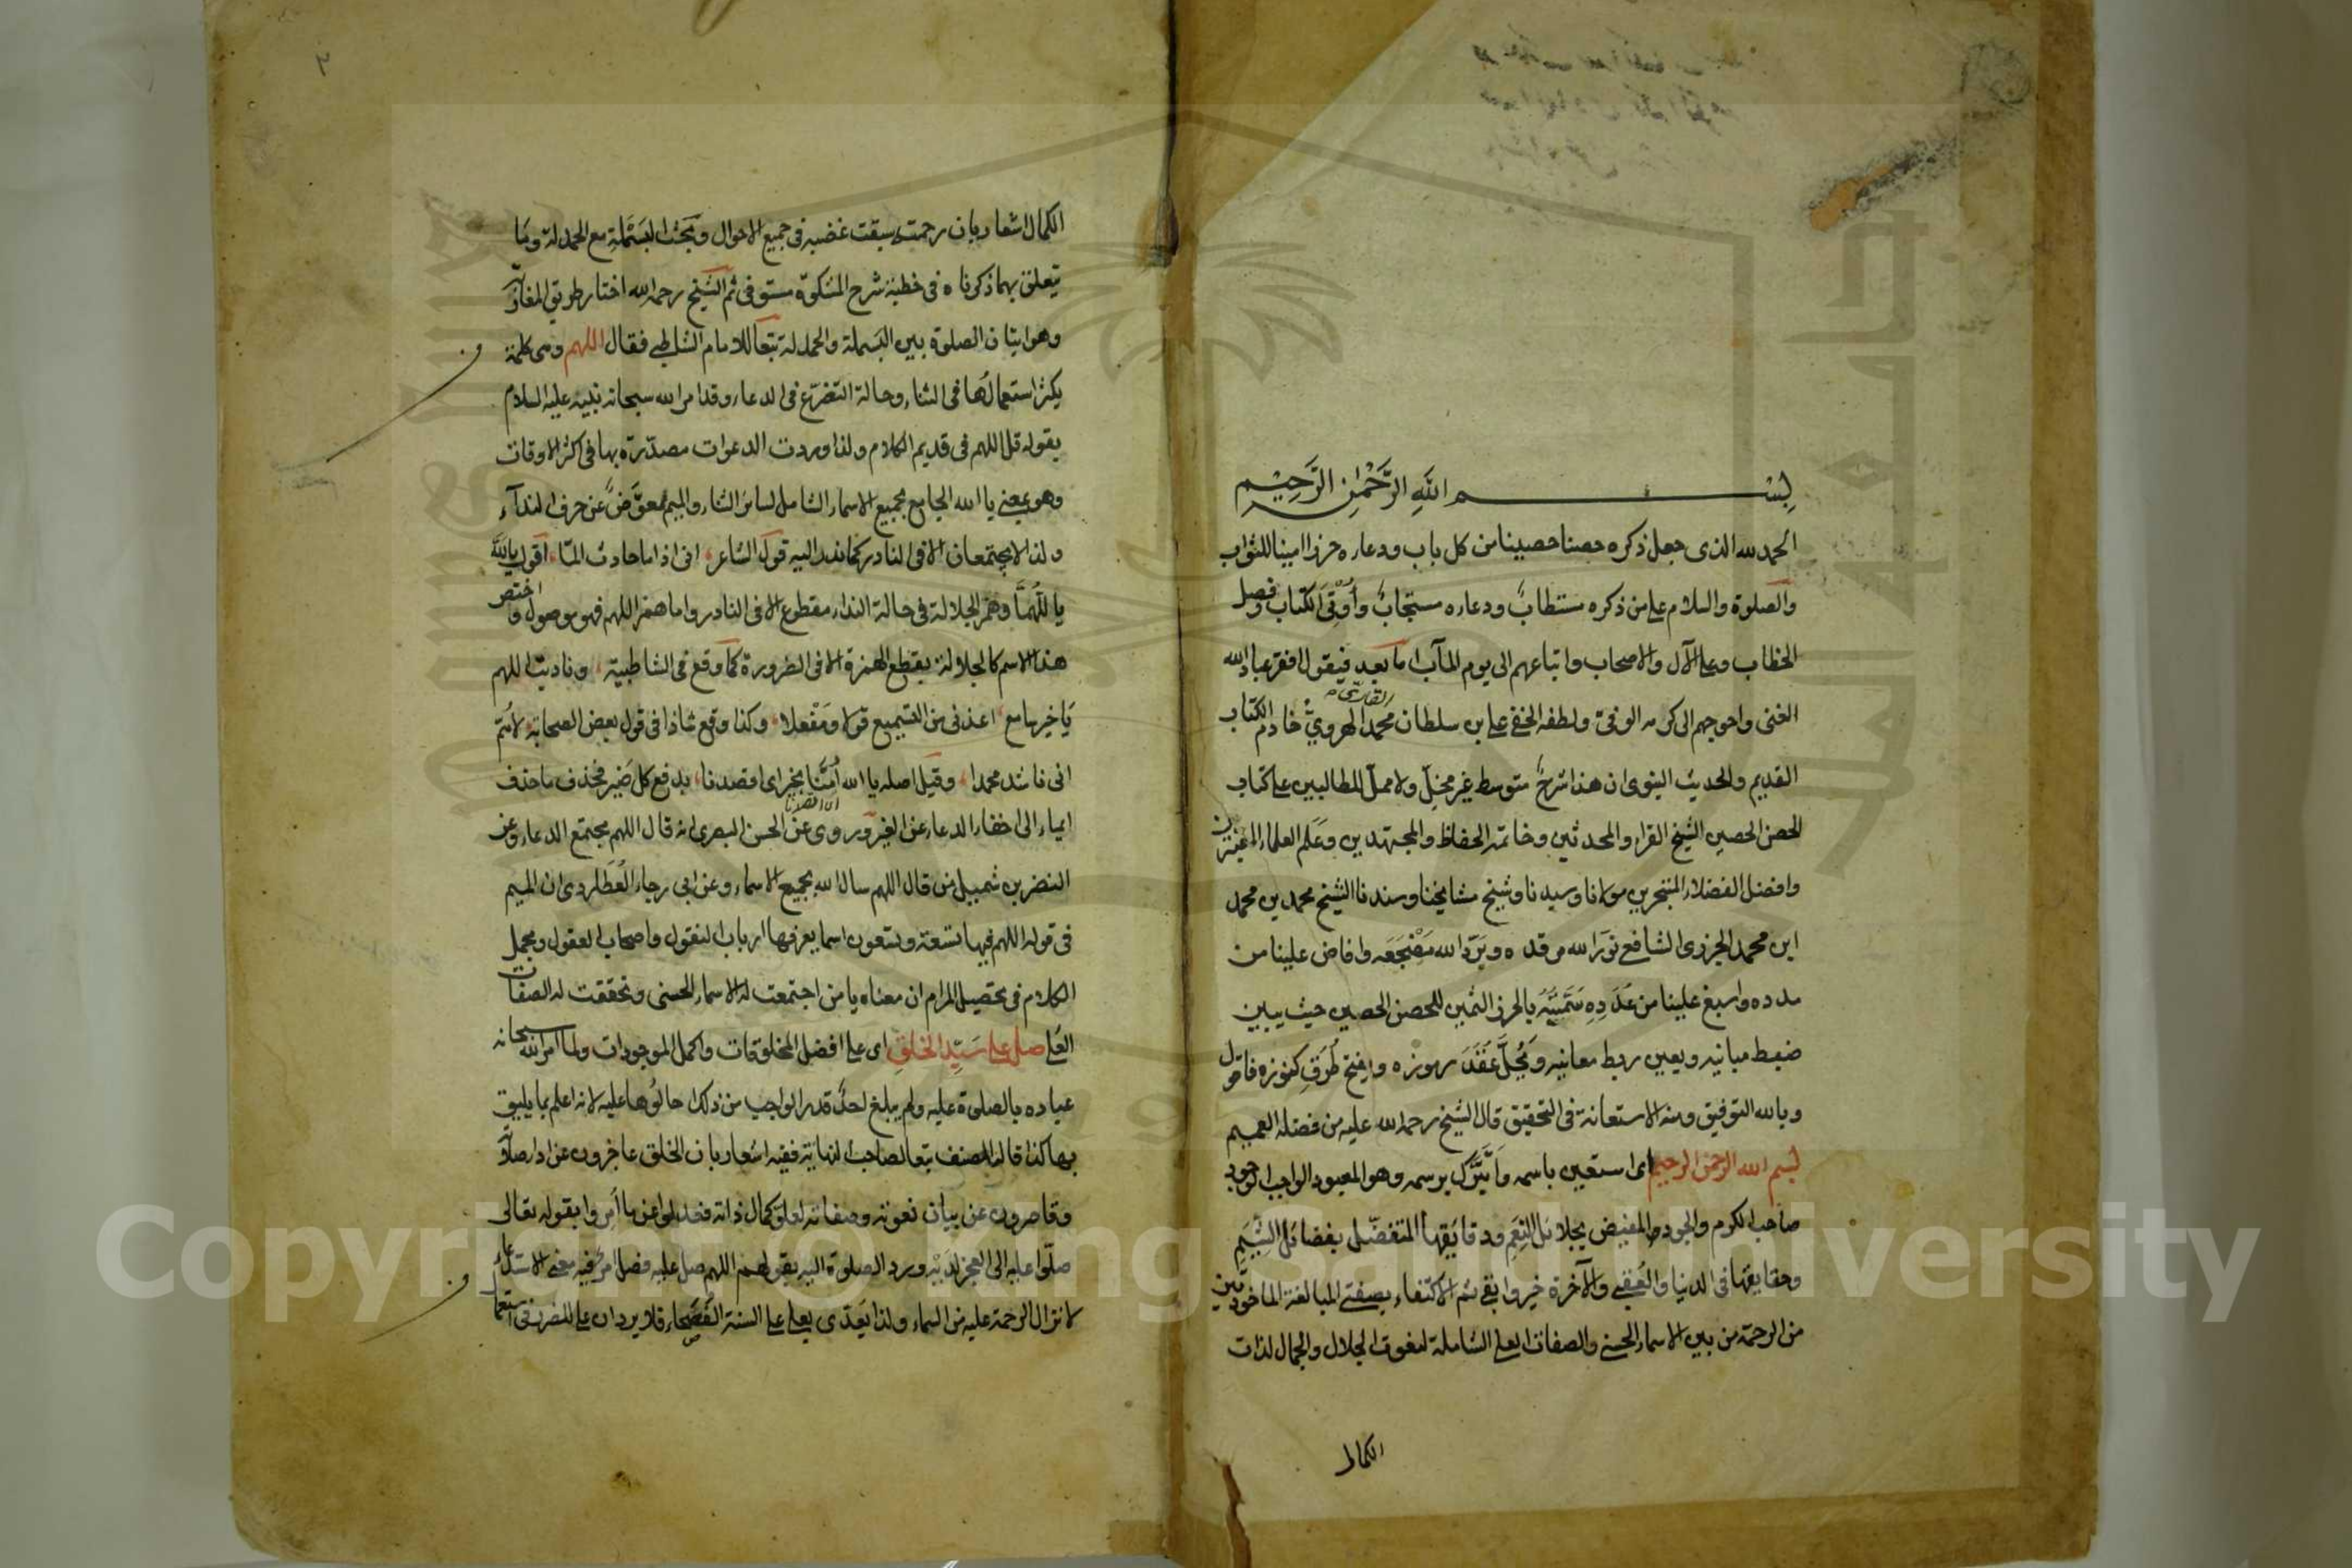 بسم الله الرَّحْمٰنِ الرَّحِيْمِ
الحمد لله الذى جعل ذكره حصنا حصينا من كل باب ودعاءه حرزا امينا للثواب
والصلوة والسلام على من ذكره مستطابٌ ودعاءه مستجابٌ وأُوْتِىَ الكتاب وفصل
الخطاب وعلى الآل والاصحاب واتباعهم الى يوم المآب اما بعد فيقول افقر عباد الله
الغنى واحوجهم الى كرمه الوفىّ ولطفه الخفى على بن سلطان محمد الهروىّ القارى خادم الكتاب
القديم والحديث النبوى ان هذا شرحٌ متوسط غير مخلّ ولا مملّ للطالبين على كتاب
الحصن الحصين لشيخ القراء والمحدثين وخاتمة الحفاظ والمجتهدين وعَلَم العلماء المعتبرين
وافضل الفضلاء المتبحرين مولانا وسيدنا وشيخ مشايخنا وسندنا الشيخ محمد بن محمد
ابن محمد الجزرى الشافعى نوّر الله مرقده وبرّد الله مَضْجَعَه وافاض علينا من
مدده واسبغ علينا من عُدَدِهِ سَمَّيْتُهُ بالحرز الثمين للحصن الحصين حيث يبين
ضبط مبانيه ويعين ربط معانيه ويُحلّ عُقَدَ رموزه ويفتح طُرَقِ كنوزه فاقول
وبالله التوفيق ومنه الاستعانة فى التحقيق قال الشيخ رحمه الله عليه من فضله العميم
بسم الله الرحمن الرحيم اى استعين باسمه وأَتَبَرَّك برسمه وهو المعبود الواجب الوجود
صاحب الكرم والجود المفيض بجلائل النِعَم ودقايقها المتفضّل بفضائل الشِّيَمِ
وحقايقها فى الدنيا والعُقبى والآخرة خير وابقى ثم الاكتفاء بصفتى المبالغة الماخوذتين
من الرحمة من بين الاسماء الحسنى والصفات العلى الشاملة لنعوت الجلال والجمال لذات
الكمال
٢
الكمال اشعار بان رحمته سبقت غضبه فى جميع الاحوال وبَحْث البَسْمَلَةِ مع الحمدلة وما
يتعلق بهما ذكرناه فى خطبة شرح المشكوة مستوفى ثم الشيخ رحمه الله اختار طريق المغاربة
وهو اتيان الصلوة بين البسملة والحمدلة تبعا للامام الشاطبى فقال اللهم وهى كلمة
يكثر استعمالُها فى الثناء وحالة التضرّع فى الدعاء وقد امر الله سبحانه نبيه عليه السلام
بقوله قل اللهم فى قديم الكلام ولذا وردت الدعوات مصدّرة بها فى اكثر الاوقات
وهو بمعنى يا الله الجامع لجميع الاسماء الشامل لسائر الثناء والميم معوَّضٌ عن حرف النداء
ولذا لا يجتمعان الا فى النادر كما اشار اليه قول الشاعر، انى اذا ما حادث المّا، اقول يا اللهَ
يا للّهُمَّا وهمز الجلالة فى حالة النداء مقطوع الا فى النادر واما همز اللهم فهو موصول واختص
هذا الاسم كالجلالة بقطع الهمزة الا فى الضرورة كما وقع فى الشاطبية، وناديت اللهم
يا خير سامع، اعذنى من التسميع قولا ومَفْعلا، وكذا وقع شاذا فى قول بعض الصحابة لاهُمّ
انى ناشد محمدا، وقيل اصله يا الله أُمَّنا بخير اى اقصدنا، بدفع كل ضير فحذف ما حذف
ايماء الى اخفاء الدعاء عن الغير وروى عن الحسن البصرى انه قال اللهم مجتمع الدعاء وعن
النضر بن شميل من قال اللهم سال الله بجميع الاسماء وعن ابى رجاء العُطَاردى ان الميم
فى قوله اللهم فيها تسعة وتسعون اسما يعرفها ارباب النقول واصحاب العقول ومجمل
الكلام فى تحصيل المرام ان معناه يا من اجتمعت له الاسماء الحسنى وتحققت له الصفات
العُلى صل على سَيِّدِ الخلقِ اى على افضل المخلوقات واكمل الموجودات ولما امر الله سبحانه
عباده بالصلوة عليه ولم يبلغ احدٌ قدر الواجب من ذلك احالُوها عليه لانه اعلم بما يليق
بها كذا قاله المصنف تبعا لصاحب النهاية ففيه اشعار بان الخلق عاجزون عن اداء صلاته
وقاصرون عن بيان نعوته وصفاته لعلوّ كمال ذاته فعدلوا عن ما أُمِروا بقوله تعالى
صلّوا عليه الى العجز لديه ورد الصلوة اليه بقولهم اللهم صل عليه فصل امر فيه معنى الاستعلاء
لانزال الرحمة عليه من السماء ولذا يَعدّى بعلى على السنة الفُصَحاء فلا يرد ان على للضرر فى استعمال
Copyright © King Saud University